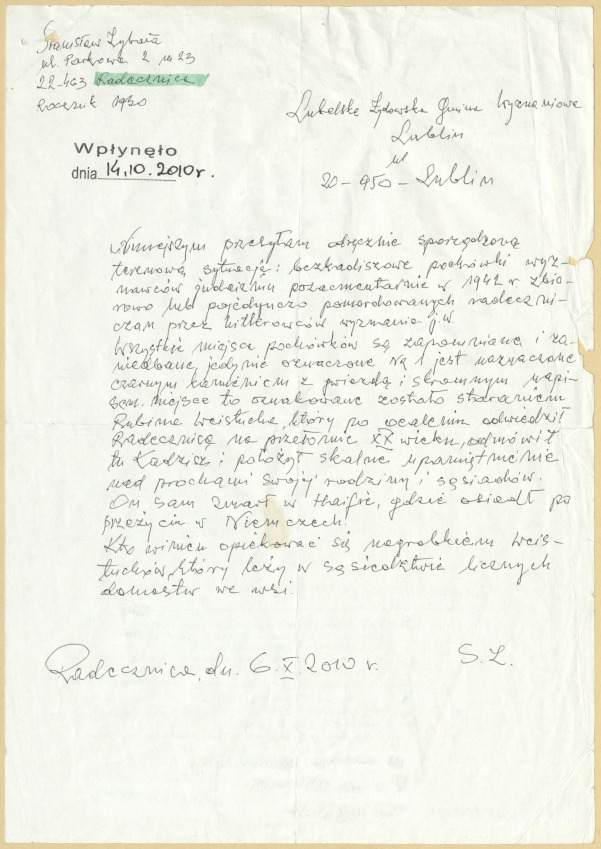 Stanisław Zybała
ul. Parkowa 2 m 23
22-463 Radecznica
Rocznik 1930
Lubelska Żydowska Gmina Wyznaniowa
Lublin
ul
20-950-Lublin
Wpłynęło
dnia 14.10.2010r.
Niniejszym przesyłam odręcznie sporządzoną
terenową sytuację: bezkadiszowe pochówki wyz-
nawców judaizmu pozacmentarnie w 1942 r zbio-
rowo lub pojedynczo pomordowanych radeczni-
czan przez hitlerowców wyznania j.w.
Wszystkie miejsca pochówków są zapomniane i za-
niedbane, jedynie oznaczone № 1 jest naznaczone
czarnym kamieniem z gwiazdą i skromnym napi-
sem. miejsce to oznakowane zostało staraniem
Rubina Weistucha, który po ocaleniu odwiedził
Radecznicę na przełomie XX wieku, odmówił
tu Kadisz i położył skalne upamiętnienie
nad prochami swojej rodziny i sąsiadów.
On sam zmarł w Haifie, gdzie osiadł po
przeżyciu w Niemczech.
Kto winien opiekować się nagrobkiem Weis-
tuchów, który leży w sąsiedztwie licznych
domostw we wsi.
Radecznica, dn. 6.X.2010 r. S.Z.